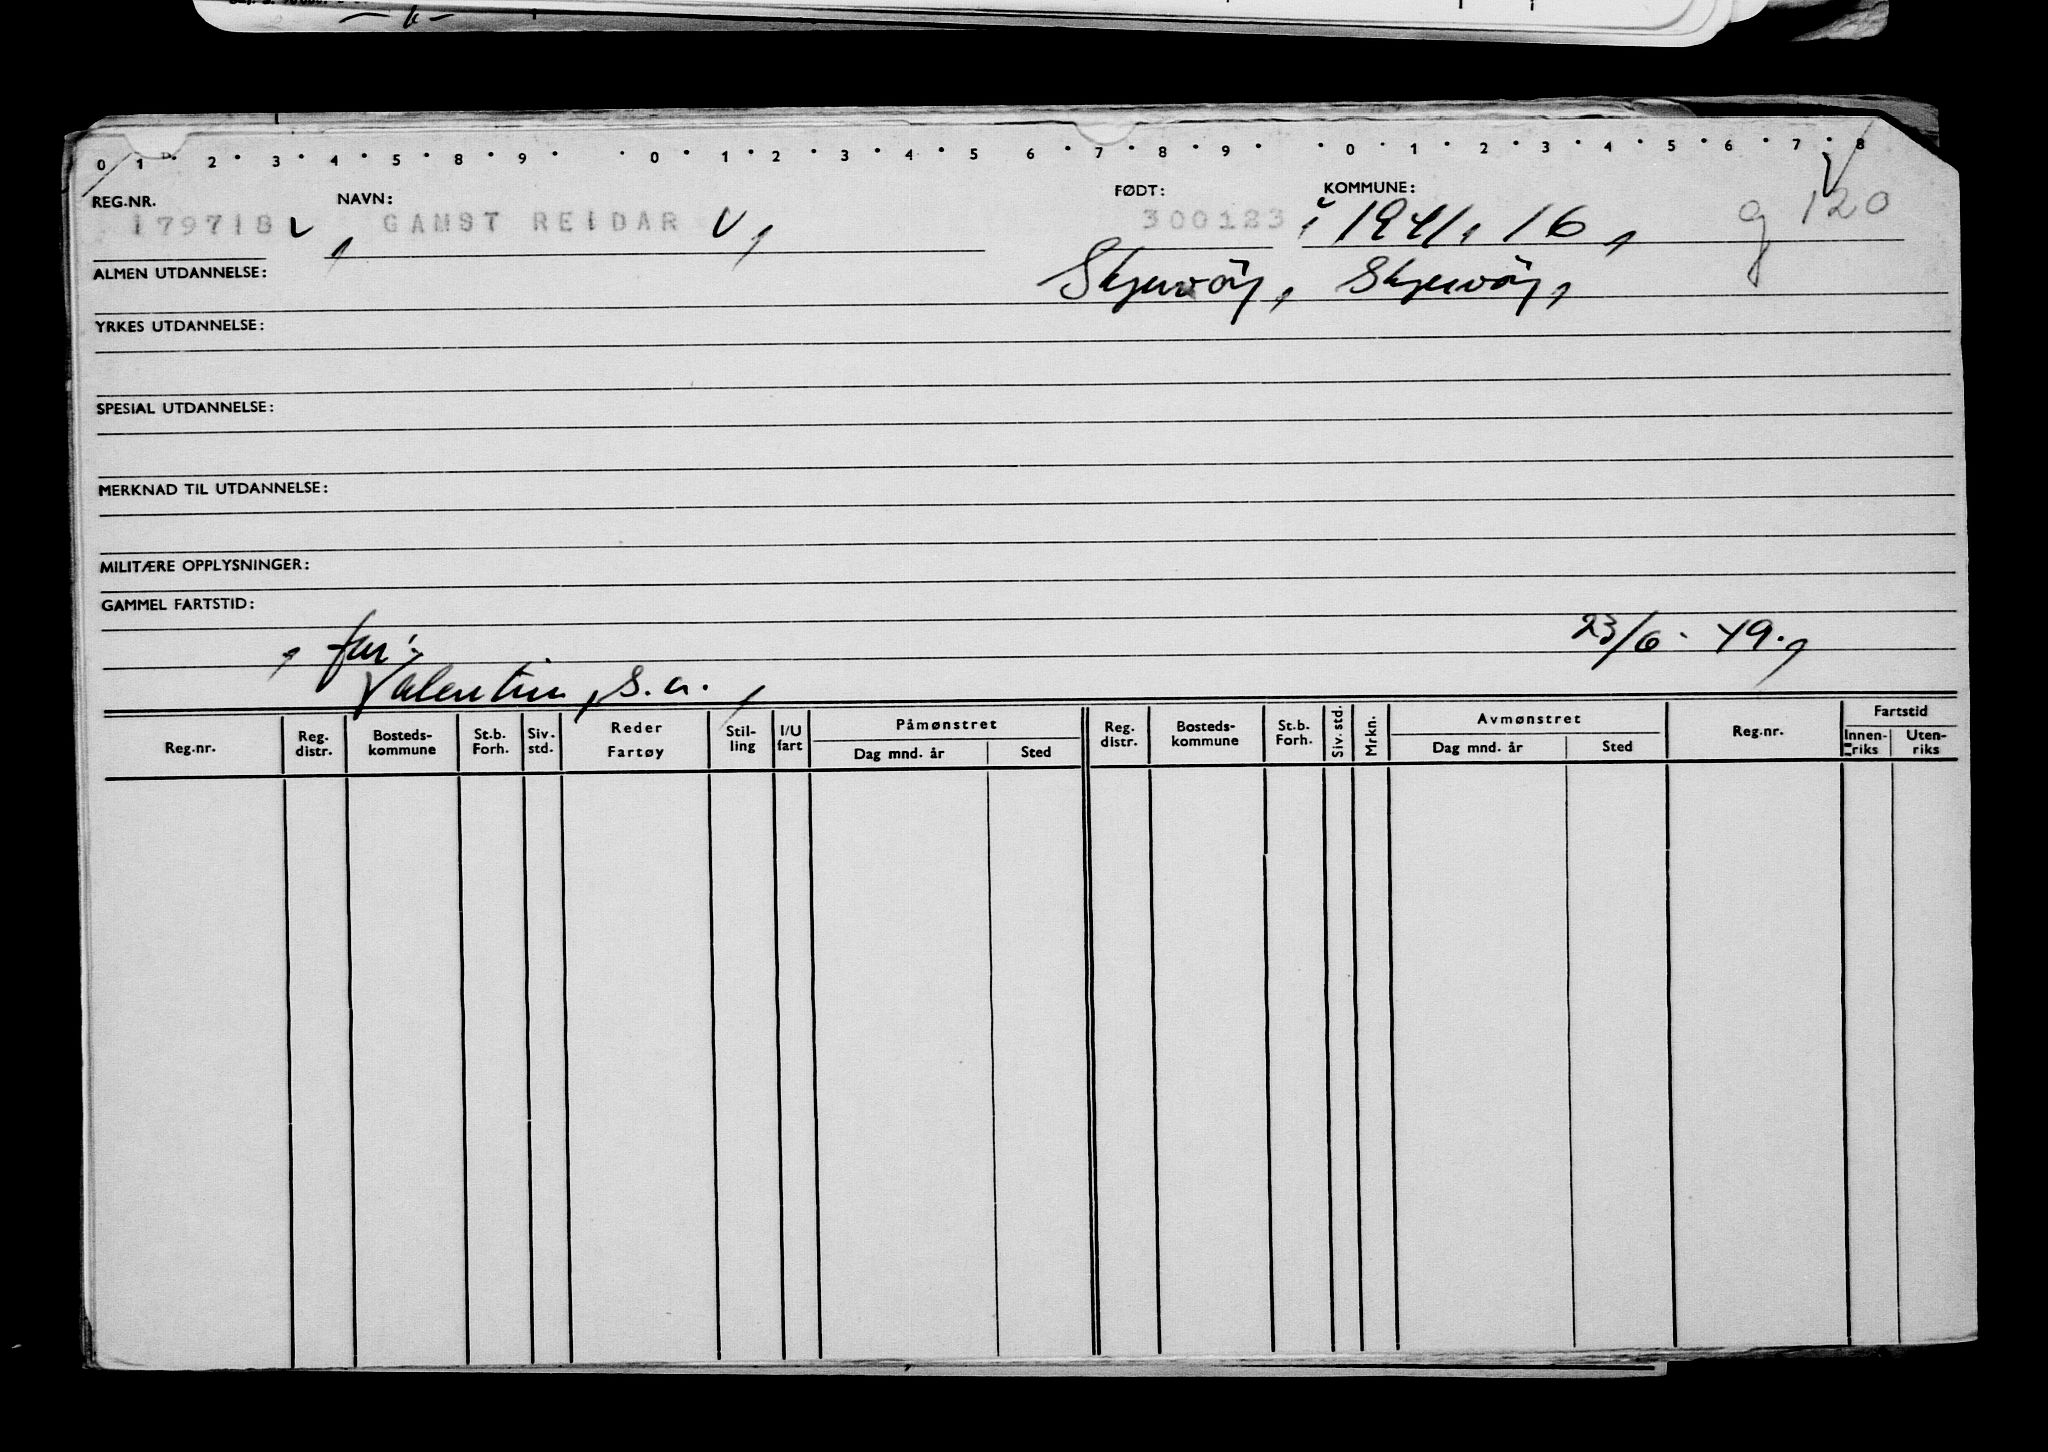 0 1 2 3 4 5 8 9 0 1 2 3 4 5 6 7 8 9 0 1 2 3 4 5 6 7 8
REG.NR. NAVN: FØDT: KOMMUNE:
179718 GAMST REIDAR 300123 i 1941, 16, g 120
ALMEN UTDANNELSE: Skjervöy, Skjervöy,
YRKES UTDANNELSE:
SPESIAL UTDANNELSE:
MERKNAD TIL UTDANNELSE:
MILITÆRE OPPLYSNINGER:
GAMMEL FARTSTID:
far: 23/6-49.,
Valentin, s.a.,
Reg.nr. Reg. distr. Bosteds-kommune St.b. Forh. Siv. std. Reder Fartøy Stil-ling I/U fart Påmønstret Dag mnd. år Sted Reg. distr. Bosteds-kommune St.b. Forh. Siv. std. Mrkn. Avmønstret Dag mnd. år Sted Reg.nr. Fartstid Innen-riks Uten-riks